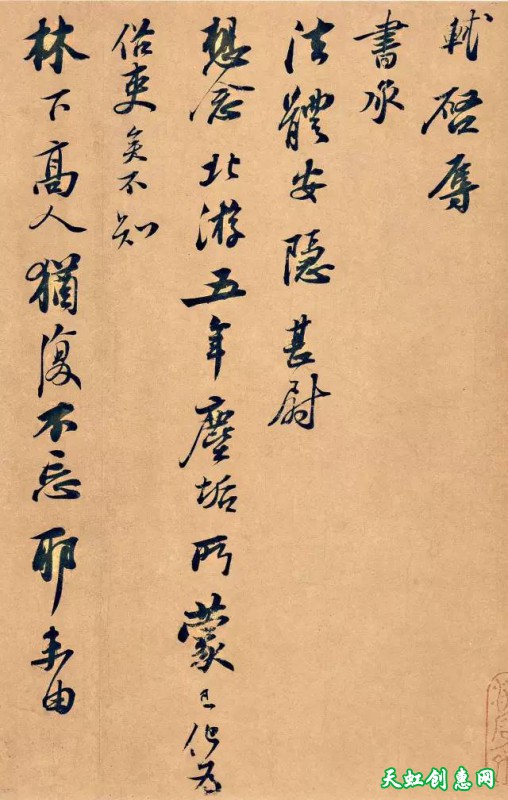 軾啓辱
書承
法體安隱甚尉
想念北游五年塵垢所蒙已化為
俗吏矣不知
林下高人猶復不忘耶未由
天虹创惠网